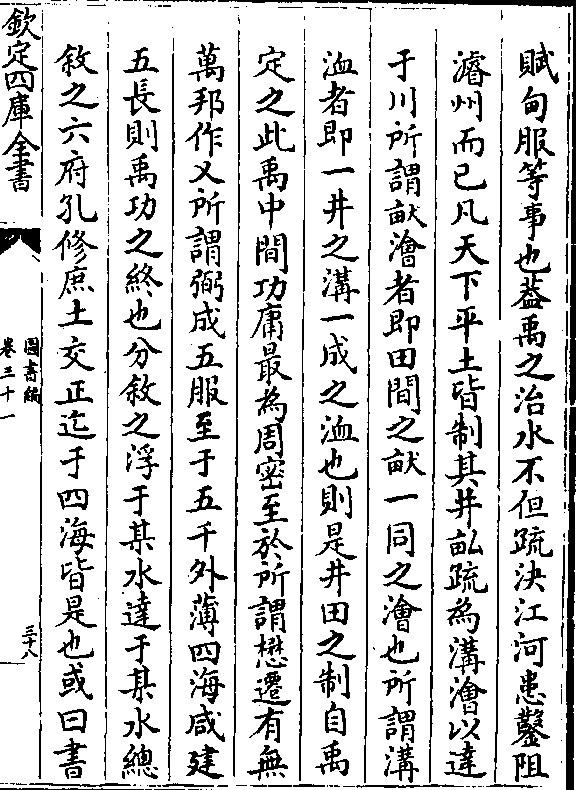 賦甸服等事也葢禹之治水不但疏決江河患鑿阻
濬州而已凡天下平土皆制其井畆疏為溝澮以達
于川所謂畎澮者即田間之畎一同之澮也所謂溝
洫者即一井之溝一成之洫也則是井田之制自禹
定之此禹中間功庸最為周密至於所謂懋遷有無
萬邦作乂所謂弼成五服至于五千外薄四海咸建
五長則禹功之終也分敘之浮于某水達于某水總
敘之六府孔修庶土交正迄于四海皆是也或曰書
欽定四庫全書
圖書編
卷三十一
三十八